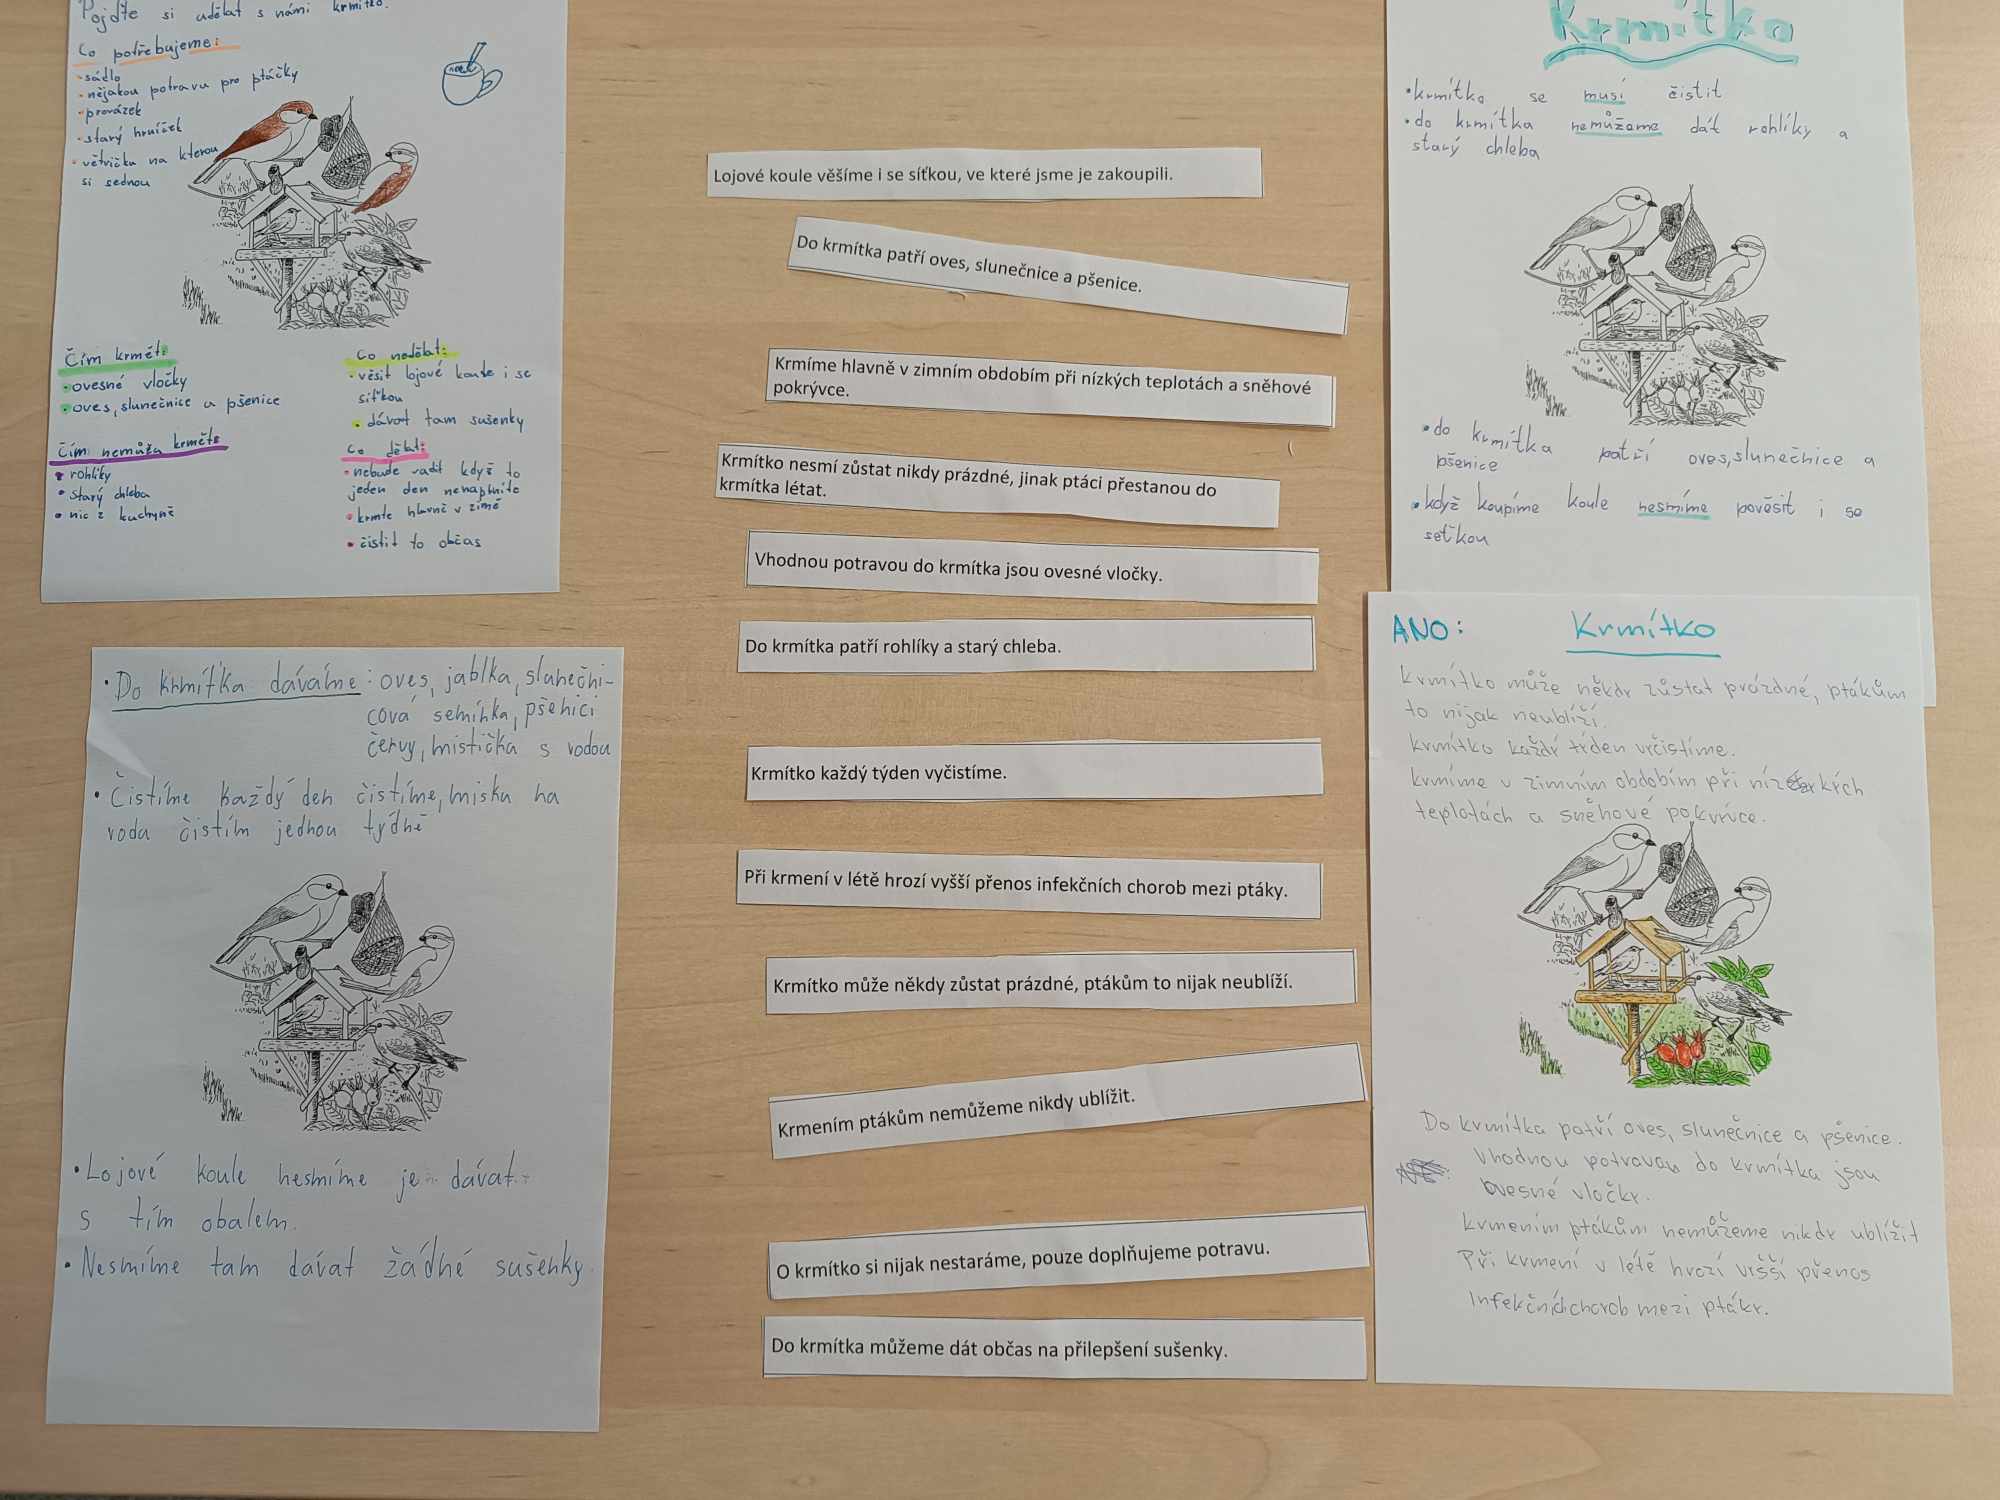 Pojďte si udělat s námi krmítko.
Co potřebujeme:
• sádlo
• nějakou potravu pro ptáčky
• provázek
• starý hrníček
• větvička na kterou
si sednou
Čím krmět:
• ovesné vločky
• oves, slunečnice a pšenice
Čím nemůža krmět:
• rohlíky
• starý chleba
• nic z kuchyně
Co nedělat:
• věsit lojové koule i se
síťkou
• dávat tam sušenky
Co dělat:
• nebude vadit když to
jeden den nenaplníte
• krmte hlavně v zimě
• čistit to občas
• Do krmítka dáváme: oves, jablka, slunečni-
cová semínka, pšenici
červy, mistička s vodou
• Čistíme každý den čistíme, miska na
voda čistím jednou týdně
• Lojové koule nesmíme je dávat
s tím obalem.
• Nesmíme tam dávat žádné sušenky.
Lojové koule věšíme i se síťkou, ve které jsme je zakoupili.
Do krmítka patří oves, slunečnice a pšenice.
Krmíme hlavně v zimním obdobím při nízkých teplotách a sněhové
pokrývce.
Krmítko nesmí zůstat nikdy prázdné, jinak ptáci přestanou do
krmítka létat.
Vhodnou potravou do krmítka jsou ovesné vločky.
Do krmítka patří rohlíky a starý chleba.
Krmítko každý týden vyčistíme.
Při krmení v létě hrozí vyšší přenos infekčních chorob mezi ptáky.
Krmítko může někdy zůstat prázdné, ptákům to nijak neublíží.
Krmením ptákům nemůžeme nikdy ublížit.
O krmítko si nijak nestaráme, pouze doplňujeme potravu.
Do krmítka můžeme dát občas na přilepšení sušenky.
Krmítko
• krmítko se musí čistit
• do krmítka nemůžeme dát rohlíky a
starý chleba
• do krmítka patří oves, slunečnice a
pšenice
• když koupíme koule nesmíme pověsit i se
seťkou
ANO: Krmítko
Krmítko může někdy zůstat prázdné, ptákům
to nijak neublíží.
Krmítko každý týden vyčistíme.
Krmíme v zimním obdobím při nízkých
teplotách a sněhové pokrývce.
Do krmítka patří oves, slunečnice a pšenice.
Vhodnou potravou do krmítka jsou
ovesné vločky.
Krmením ptákům nemůžeme nikdy ublížit
Při krmení v létě hrozí vyšší přenos
infekčních chorob mezi ptáky.